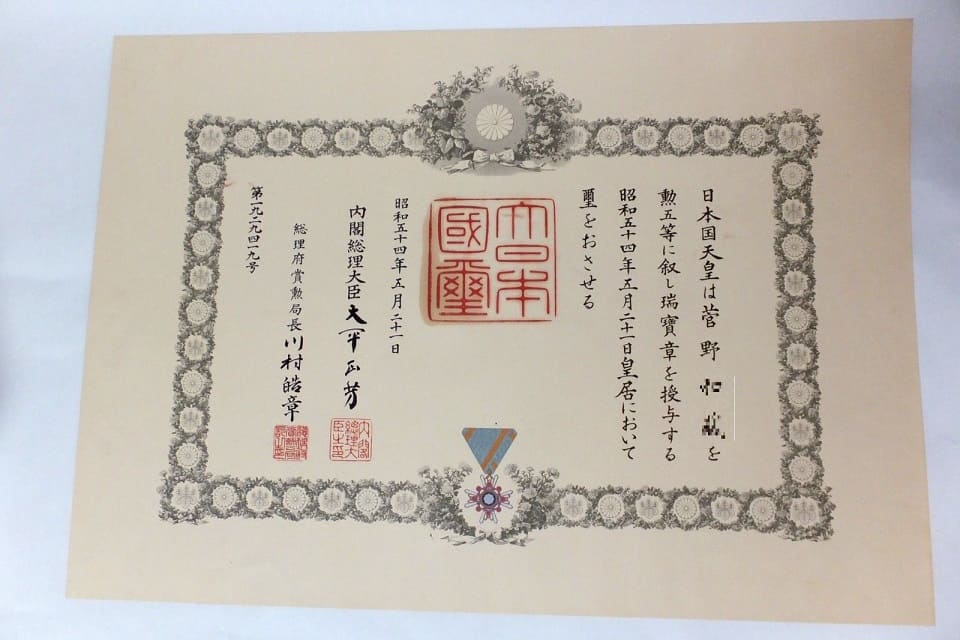 日本国天皇は菅野を
勲五等に叙し瑞寶章を授与する
昭和五十四年五月二十一日皇居において
璽をおさせる
大日本國璽
昭和五十四年五月二十一日
内閣総理大臣大平正芳
内閣総理大臣之印
総理府賞勲局長川村皓章
第一九二九四一九号